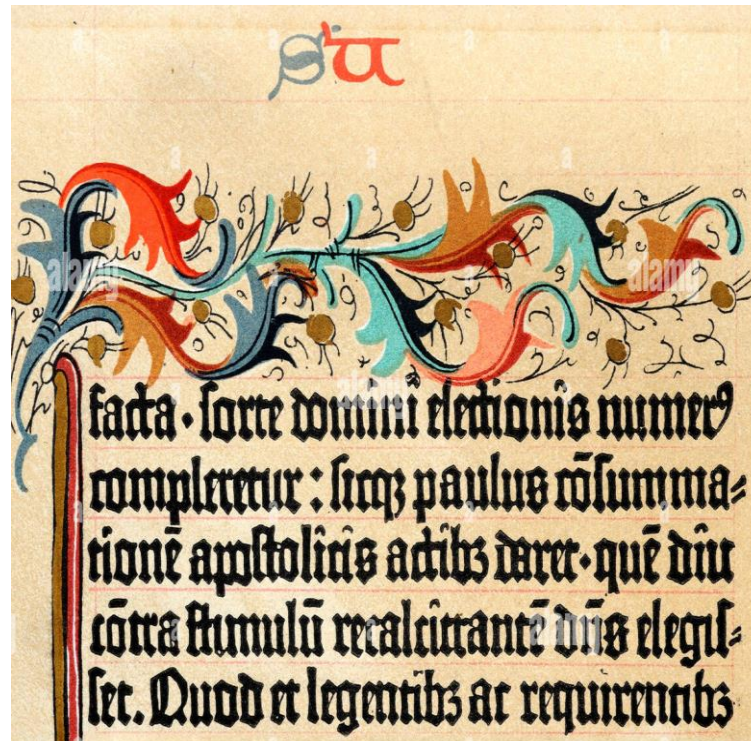 Sūa
facta · sorte domini electionis numerꝰ
compleretur : sicqꝫ paulus cōsumma⸗
tionē apostolicis actibꝫ daret · quē diu
cōtra stimulū recalcitrantē dn̄s elegis⸗
set. Quod et legentibꝫ ac requirentibꝫ